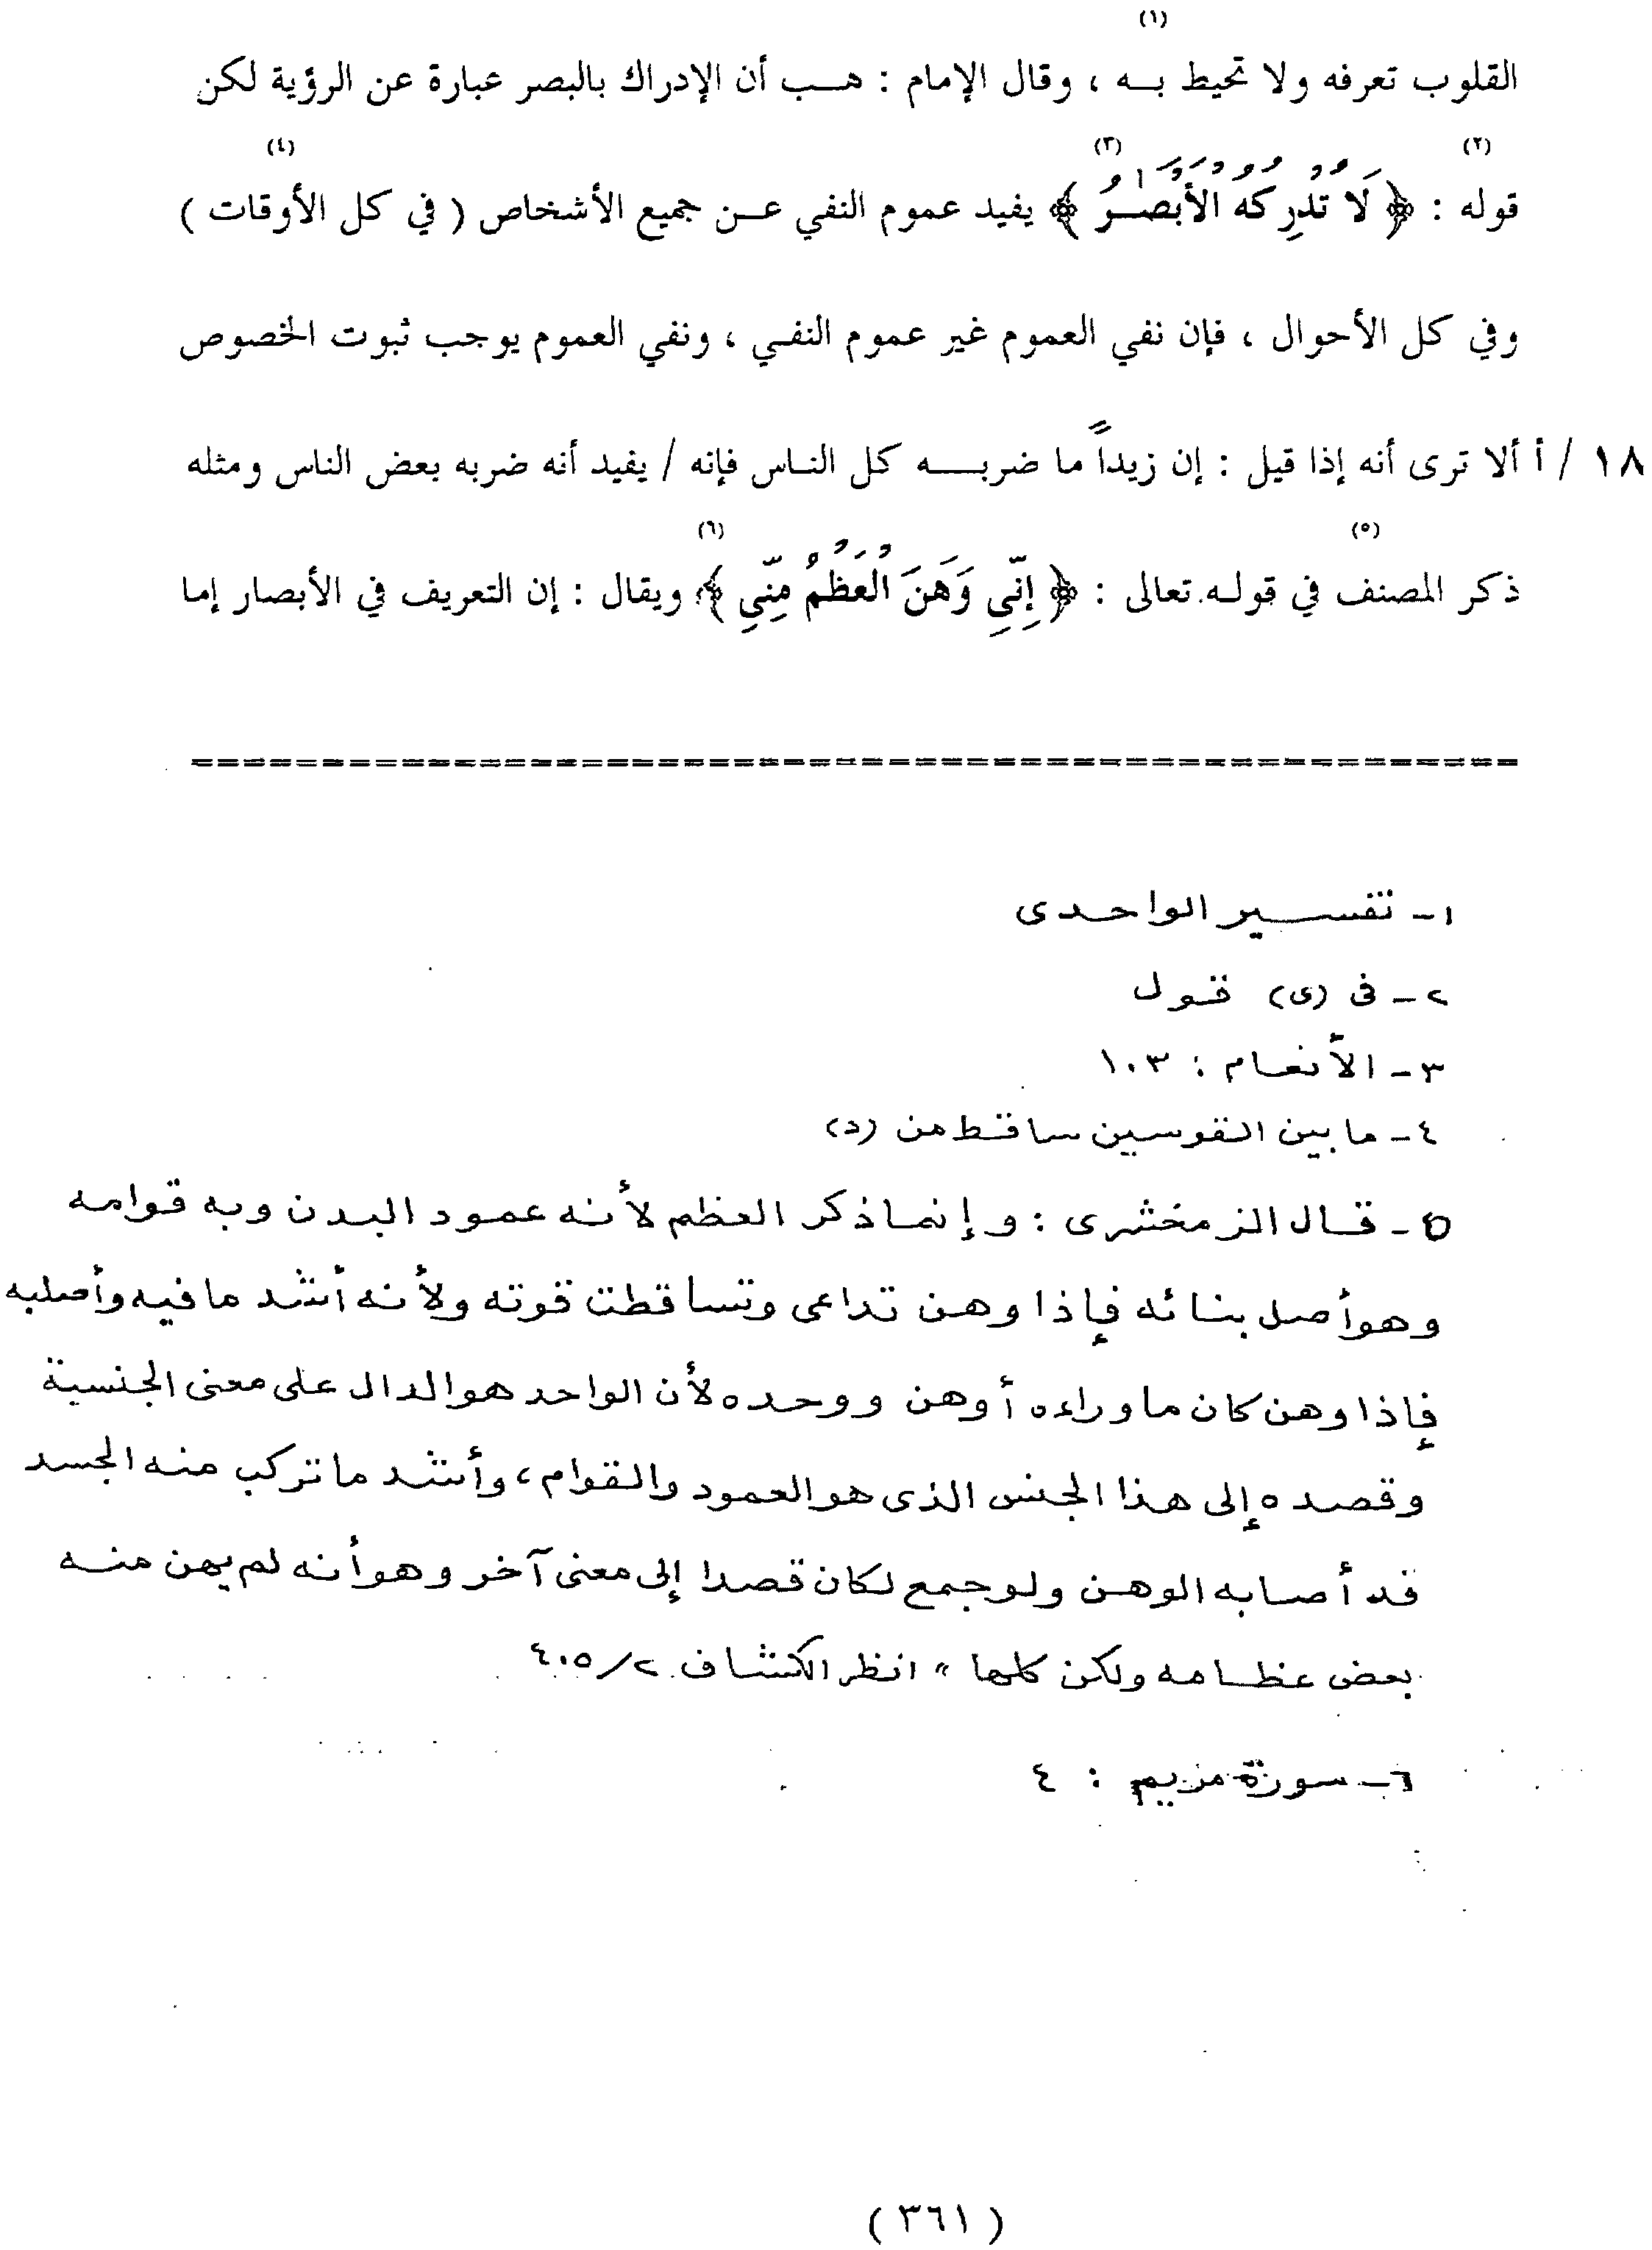 القلوب تعرفه ولا تحيط به (١) ، وقال الإمام : هب أن الإدراك بالبصر عبارة عن الرؤية لكن
قوله (٢) : ﴿ لَا تُدْرِكُهُ الْأَبْصَٰرُ ﴾ (٣) يفيد عموم النفي عن جميع الأشخاص ( في كل الأوقات ) (٤)
وفي كل الأحوال ، فإن نفي العموم غير عموم النفي ، ونفي العموم يوجب ثبوت الخصوص
١٨ / أ ألا ترى أنه إذا قيل : إن زيداً ما ضربه كل الناس فإنه / يفيد أنه ضربه بعض الناس ومثله
ذكر المصنف (٥) في قوله تعالى : ﴿ إِنِّي وَهَنَ الْعَظْمُ مِنِّي ﴾ (٦) ويقال : إن التعريف في الأبصار إما
١ - تفسير الواحدى
٢ - فى (ى) قول
٣ - الأنعام : ١٠٣
٤ - ما بين القوسين ساقط من (د)
٥ - قال الزمخشرى : وإنما ذكر العظم لأنه عمود البدن وبه قوامه
وهو أصل بنائه فإذا وهن تداعى وتساقطت قوته ولأنه أشد ما فيه وأصلبه
فإذا وهن كان ما وراءه أوهن ووحده لأن الواحد هو الدال على معنى الجنسية
وقصده إلى هذا الجنس الذى هو العمود والقوام ، وأشد ما تركب منه الجسد
قد أصابه الوهن ولو جمع لكان قصدا إلى معنى آخر وهو أنه لم يهن منه
بعض عظامه ولكن كلها " انظر الكشاف ٢/٤٠٥
٦ - سورة مريم : ٤
( ٣٦١ )